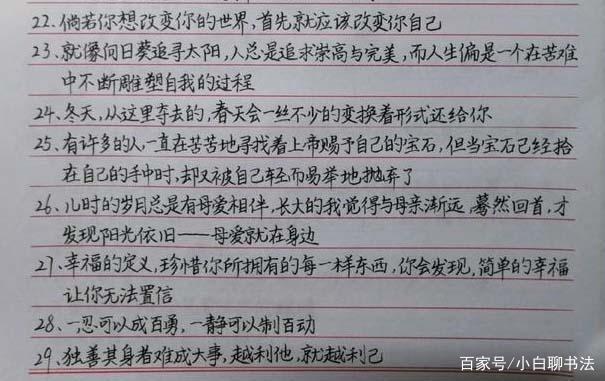 22、倘若你想改变你的世界,首先就应该改变你自己
23、就像向日葵追寻太阳,人总是追求崇高与完美,而人生偏是一个在苦难
中不断雕塑自我的过程
24、冬天,从这里夺去的,春天会一丝不少的变换着形式还给你
25、有许多的人一直在苦苦地寻找着上帝赐予自己的宝石,但当宝石已经拾
在自己的手中时,却又被自己轻而易举地抛弃了
26、儿时的岁月总是有母爱相伴,长大的我觉得与母亲渐远,蓦然回首,才
发现阳光依旧——母爱就在身边
27、幸福的定义,珍惜你所拥有的每一样东西,你会发现,简单的幸福
让你无法置信
28、一忍可以成百勇,一静可以制百动
29、独善其身者难成大事,越利他,就越利己
百家号/小白聊书法